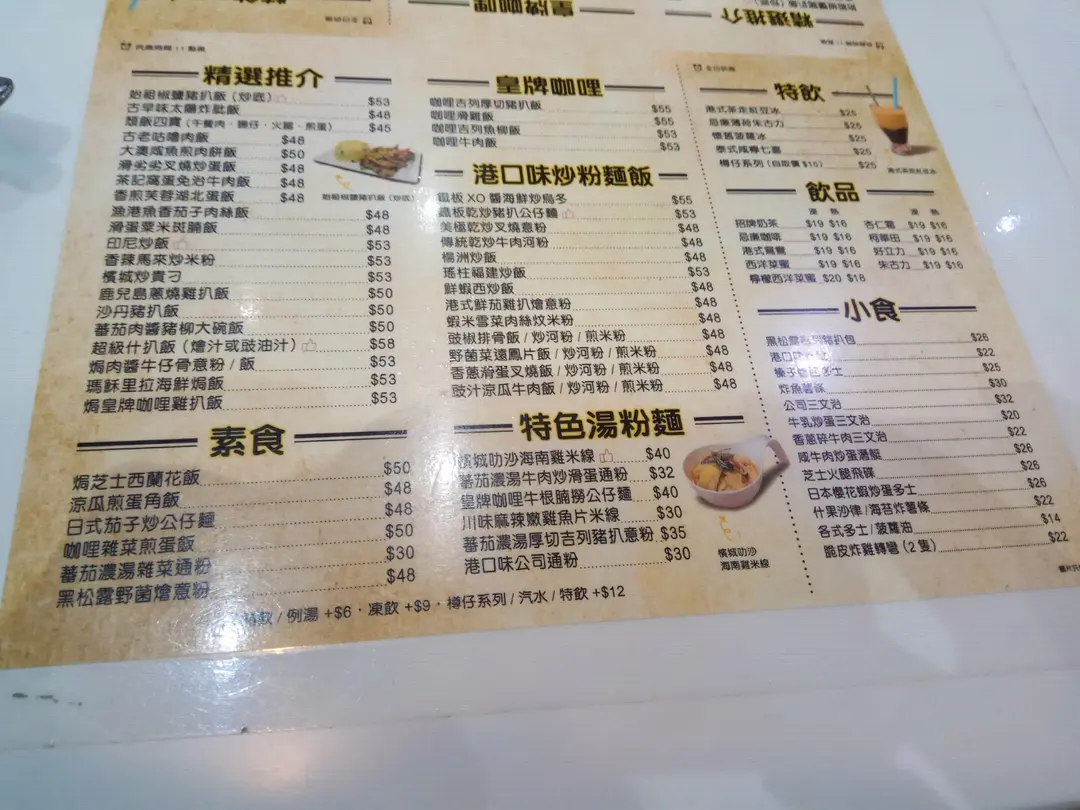 精選推介
始祖椒鹽豬扒飯（炒底） $53
古早味太陽炸批飯 $48
頹飯四寶（午餐肉．腸仔．火腿．煎蛋） $45
古老咕嚕肉飯 $48
大澳咸魚煎肉餅飯 $50
滑劣劣叉燒炒蛋飯 $48
茶記窩蛋免治牛肉飯 $48
香煎芙蓉湖北蛋飯 $48
漁港魚香茄子肉絲飯 $48
滑蛋粟米斑腩飯 $48
印尼炒飯 $53
香辣馬來炒米粉 $53
檳城炒貴刁 $53
鹿兒島蔥燒雞扒飯 $50
沙丹豬扒飯 $50
蕃茄肉醬豬柳大碗飯 $50
超級什扒飯（燴汁或豉油汁） $58
焗肉醬牛仔骨意粉 / 飯 $53
瑪穌里拉海鮮焗飯 $53
焗皇牌咖哩雞扒飯 $53
始祖椒鹽豬扒飯（炒底）
素食
焗芝士西蘭花飯 $50
涼瓜煎蛋角飯 $48
日式茄子炒公仔麵 $48
咖哩雜菜煎蛋飯 $50
蕃茄濃湯雜菜通粉 $30
黑松露野菌燴意粉 $48
皇牌咖哩
咖哩吉列厚切豬扒飯 $55
咖哩滑雞飯 $55
咖哩吉列魚柳飯 $53
咖哩牛肉飯 $53
港口味炒粉麵飯
鐵板 XO 醬海鮮炒烏冬 $55
鐵板乾炒豬扒公仔麵 $53
美極乾炒叉燒意粉 $48
傳統乾炒牛肉河粉 $48
楊洲炒飯 $48
瑤柱福建炒飯 $53
鮮蝦西炒飯 $48
港式鮮茄雞扒燴意粉 $48
蝦米雪菜肉絲炆米粉 $48
豉椒排骨飯 / 炒河粉 / 煎米粉 $48
野菌菜遠鳳片飯 / 炒河粉 / 煎米粉 $48
香蔥滑蛋叉燒飯 / 炒河粉 / 煎米粉 $48
豉汁涼瓜牛肉飯 / 炒河粉 / 煎米粉 $48
特色湯粉麵
檳城叻沙海南雞米線 $40
蕃茄濃湯牛肉炒滑蛋通粉 $32
皇牌咖哩牛根腩撈公仔麵 $40
川味麻辣嫩雞魚片米線 $30
蕃茄濃湯厚切吉列豬扒意粉 $35
港口味公司通粉 $30
檳城叻沙
海南雞米線
特飲
港式茶走紅豆冰 $25
忌廉薄荷朱古力 $25
懷舊菠蘿冰 $25
泰式咸檸七喜 $25
樽仔系列（自取價 $15） $25
港式茶走紅豆冰
飲品
凍 熱 凍 熱
招牌奶茶 $19 $16 杏仁霜 $19 $16
忌廉咖啡 $19 $16 柯華田 $19 $16
港式鴛鴦 $19 $16 好立力 $19 $16
西洋菜蜜 $19 $16 朱古力 $19 $16
檸檬西洋菜蜜 $20 $18
小食
$26
$22
$25
炸魚薯條 $30
公司三文治 $32
牛乳炒蛋三文治 $20
香蔥碎牛肉三文治 $22
咸牛肉炒蛋潛艇 $26
芝士火腿飛碟 $26
日本櫻花蝦炒蛋多士 $26
什果沙律 / 海苔炸薯條 $22
各式多士 / 菠蘿油 $14
脆皮炸雞轉彎（2 隻） $22
熱飲 / 例湯 +$6．凍飲 +$9．樽仔系列 / 汽水 / 特飲 +$12